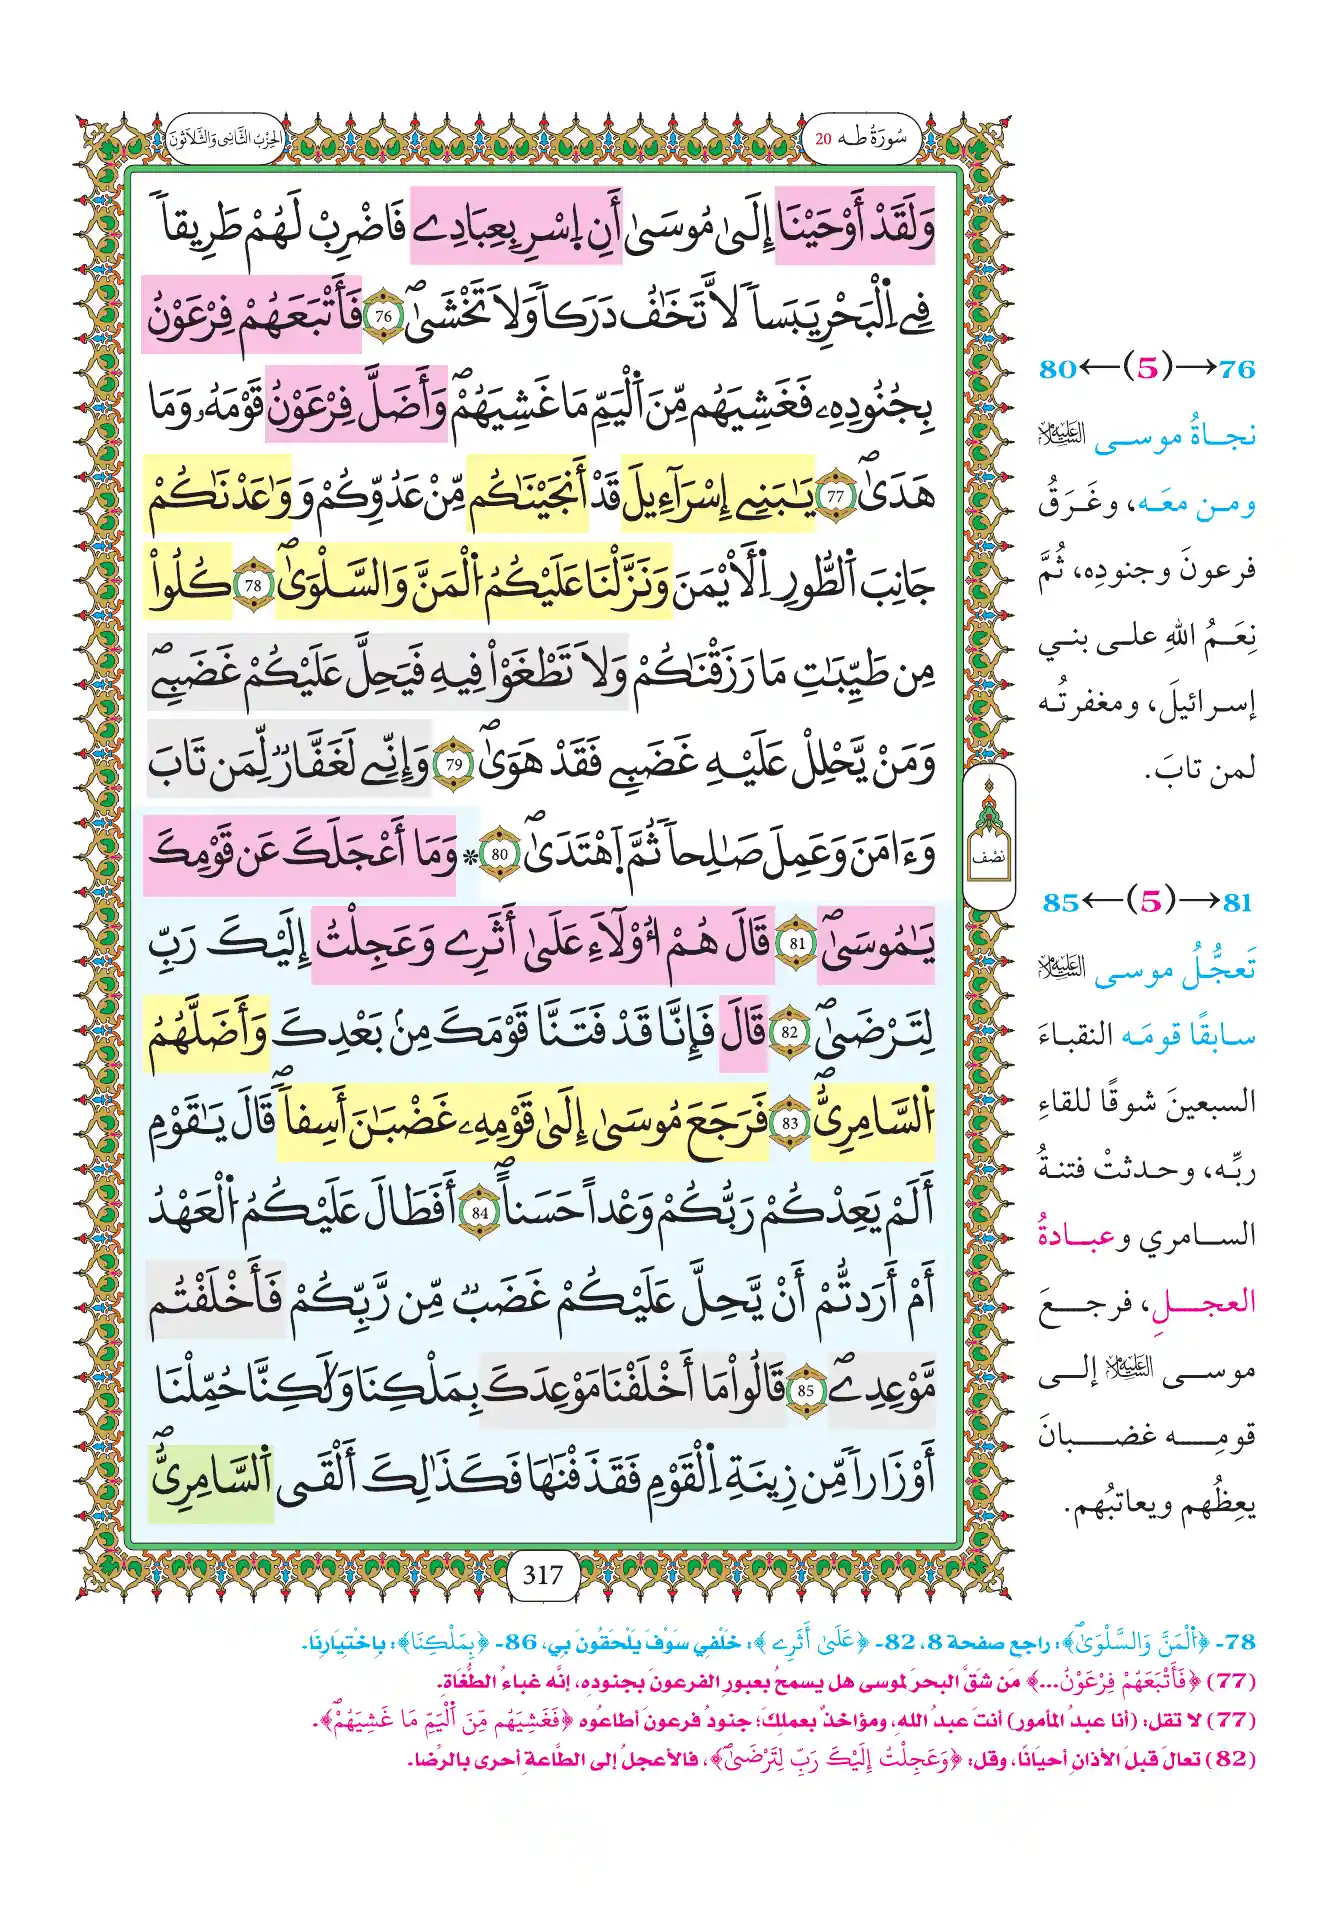 سُورَةُ طـه 20
الحِزْبُ الثَّانِي وَالثَّلَاثُونَ
وَلَقَدْ أَوْحَيْنَا إِلَىٰ مُوسَىٰ أَنِ اِسْرِ بِعِبَادِے فَاضْرِبْ لَهُمْ طَرِيقاٗ
فِے اِ۬لْبَحْرِ يَبَساٗ لَّا تَخَٰفُ دَرَكاٗ وَلَا تَخْشَىٰۖ 76 فَأَتْبَعَهُمْ فِرْعَوْنُ
بِجُنُودِهِۦ فَغَشِيَهُم مِّنَ اَ۬لْيَمِّ مَا غَشِيَهُمْۖ وَأَضَلَّ فِرْعَوْنُ قَوْمَهُۥ وَمَا
هَدَىٰۖ 77 يَٰبَنِے إِسْرَآءِيلَ قَدْ أَنجَيْنَٰكُم مِّنْ عَدُوِّكُمْ وَوَٰعَدْنَٰكُمْ
جَانِبَ اَ۬لطُّورِ اِ۬لْأَيْمَنَ وَنَزَّلْنَا عَلَيْكُمُ اُ۬لْمَنَّ وَالسَّلْوَىٰۖ 78 كُلُواْ
مِن طَيِّبَٰتِ مَا رَزَقْنَٰكُمْ وَلَا تَطْغَوْاْ فِيهِ فَيَحِلَّ عَلَيْكُمْ غَضَبِےۖ
وَمَنْ يَّحْلِلْ عَلَيْهِ غَضَبِے فَقَدْ هَوَىٰۖ 79 وَإِنِّے لَغَفَّارٞ لِّمَن تَابَ
وَءَامَنَ وَعَمِلَ صَٰلِحاٗ ثُمَّ اَ۪هْتَدَىٰۖ 80 * وَمَا أَعْجَلَكَ عَن قَوْمِكَ
يَٰمُوسَىٰۖ 81 قَالَ هُمْ أُوْلَآءِ عَلَىٰ أَثَرِے وَعَجِلْتُ إِلَيْكَ رَبِّ
لِتَرْضَىٰۖ 82 قَالَ فَإِنَّا قَدْ فَتَنَّا قَوْمَكَ مِنۢ بَعْدِكَ وَأَضَلَّهُمُ
اُ۬لسَّامِرِيُّۖ 83 فَرَجَعَ مُوسَىٰ إِلَىٰ قَوْمِهِۦ غَضْبَٰنَ أَسِفاٗۖ قَالَ يَٰقَوْمِ
أَلَمْ يَعِدْكُمْ رَبُّكُمْ وَعْداً حَسَناًۖ 84 أَفَطَالَ عَلَيْكُمُ اُ۬لْعَهْدُ
أَمْ أَرَدتُّمْ أَنْ يَّحِلَّ عَلَيْكُمْ غَضَبٞ مِّن رَّبِّكُمْ فَأَخْلَفْتُم
مَّوْعِدِےۖ 85 قَالُواْ مَا أَخْلَفْنَا مَوْعِدَكَ بِمَلْكِنَا وَلَٰكِنَّا حُمِّلْنَا
أَوْزَاراٗ مِّن زِينَةِ اِ۬لْقَوْمِ فَقَذَفْنَٰهَا فَكَذَٰلِكَ أَلْقَى اَ۬لسَّامِرِيُّۖ
نصف
317
76→(5)←80
نجـاةُ موسـى عليه السلام
ومـن معَـه، وغَـرَقُ
فرعونَ وجنودِه، ثُمَّ
نِعَـمُ اللهِ علـى بنـي
إسـرائيلَ، ومغفرتُـه
لمن تابَ.
81→(5)←85
تَعجُّـلُ موسـى عليه السلام
سـابقًا قومَـه النقبـاءَ
السبعينَ شوقًا للقاءِ
ربِّـه، وحـدثتْ فتنـةُ
السـامري وعبـادةُ
العجـلِ، فرجـعَ
موسـى عليه السلام إلـى
قومِـه غضبـانَ
يعِظُهم ويعاتبُهم.
78- ﴿اُ۬لْمَنَّ وَالسَّلْوَىٰۖ﴾: راجع صفحة 8، 82- ﴿عَلَىٰ أَثَرِے﴾: خَلْفِي سَوْفَ يَلْحَقُونَ بِي، 86- ﴿بِمَلْكِنَا﴾: بِاخْتِيَارِنَا.
(77) ﴿فَأَتْبَعَهُمْ فِرْعَوْنُ...﴾ مَن شَقَّ البحرَ لموسى هل يسمحُ بعبورِ الفرعونَ بجنوده، إنَّه غباءُ الطُّغَاةِ.
(77) لا تقل: (أنا عبدُ المأمور) أنتَ عبدُ اللهِ، ومؤاخذٌ بعملِكَ؛ جنودُ فرعونَ أطاعُوه ﴿فَغَشِيَهُم مِّنَ اَ۬لْيَمِّ مَا غَشِيَهُمْۖ﴾.
(82) تعالَ قبلَ الأذانِ أحيانًا، وقل: ﴿وَعَجِلْتُ إِلَيْكَ رَبِّ لِتَرْضَىٰۖ﴾، فالأعجلُ إلى الطَّاعةِ أحرى بالرِّضا.